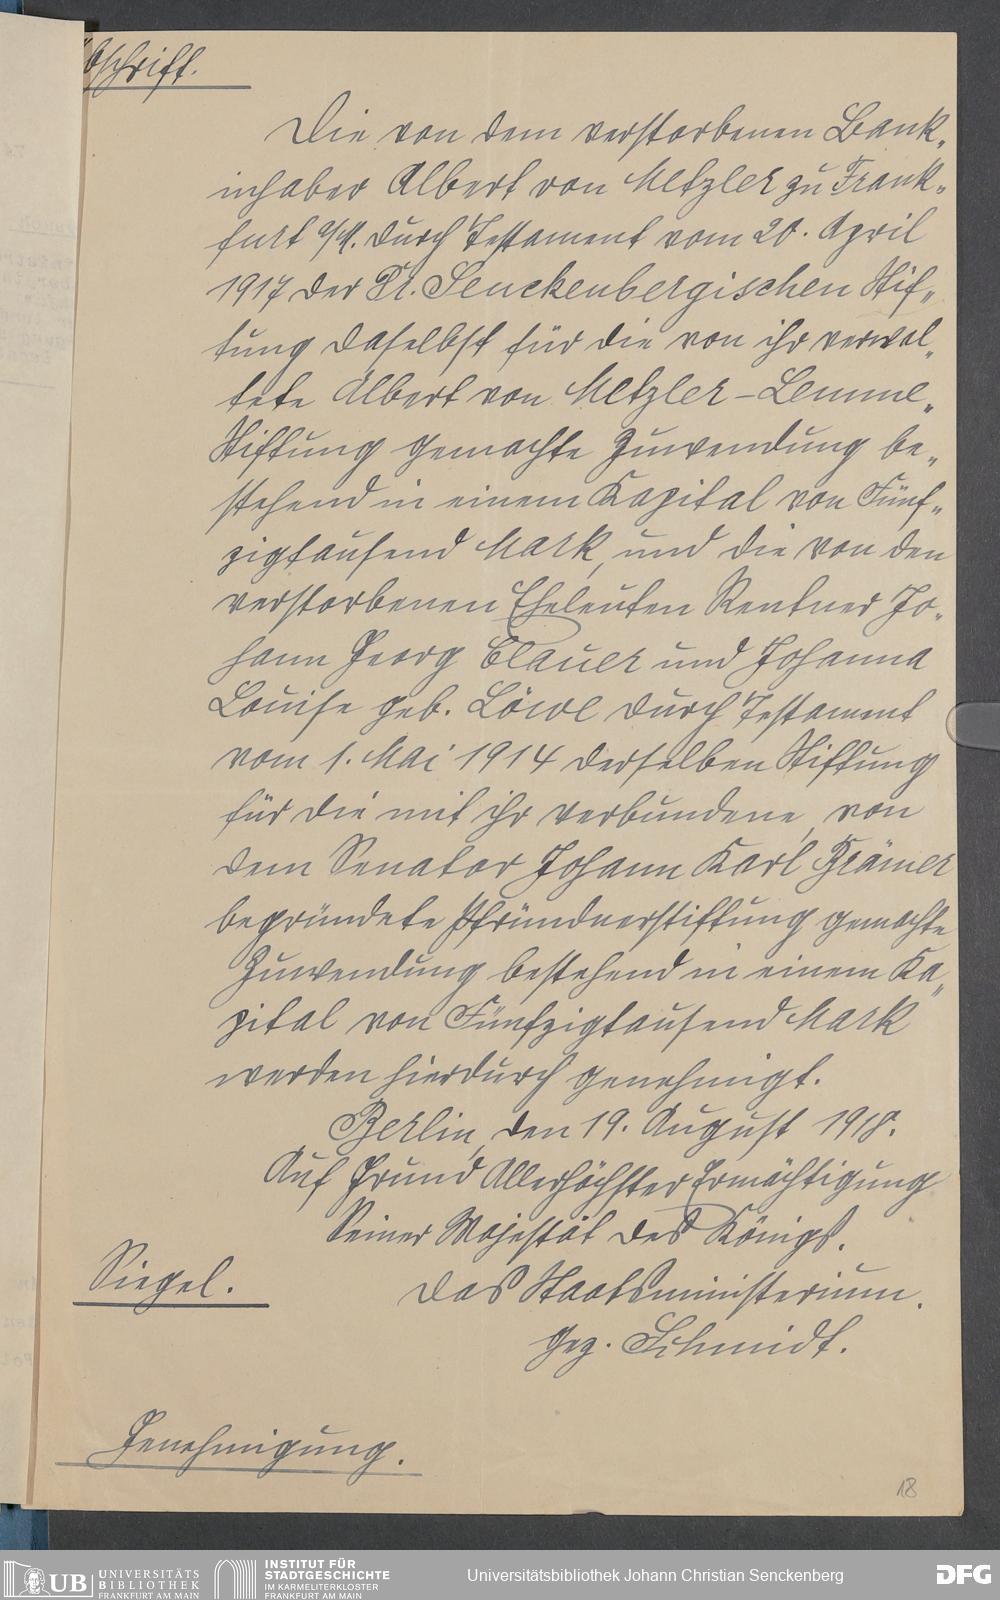 Abschrift.
Die von dem verstorbenen Bank-
inhaber Albert von Metzler zu Frank-
furt a/M. durch Testament vom 20. April
1917 der Dr. Senckenbergischen Stif-
tung daselbst für die von ihr verwal-
tete Albert von Metzler-Lemmé-
Stiftung gemachte Zuwendung be-
stehend in einem Kapital von Fünf-
zigtausend Mark, und die von den
verstorbenen Eheleuten Rentner Jo-
hann Georg Clauer und Johanna
Louise geb. Löwe durch Testament
vom 1. Mai 1914 derselben Stiftung
für die mit ihr verbundene, von
dem Senator Johann Karl Brämer
begründete Pfründnerstiftung gemachte
Zuwendung bestehend in einem Ka-
pital von Fünfzigtausend Mark
werden hierdurch genehmigt.
Berlin, den 19. August 1918.
Auf Grund Allerhöchster Ermächtigung
Seiner Majestät des Königs.
Siegel.
Das Staatsministerium.
gez. Schmidt.
Genehmigung.
18
UB UNIVERSITÄTS
BIBLIOTHEK
FRANKFURT AM MAIN
INSTITUT FÜR
STADTGESCHICHTE
IM KARMELITERKLOSTER
FRANKFURT AM MAIN
Universitätsbibliothek Johann Christian Senckenberg
DFG